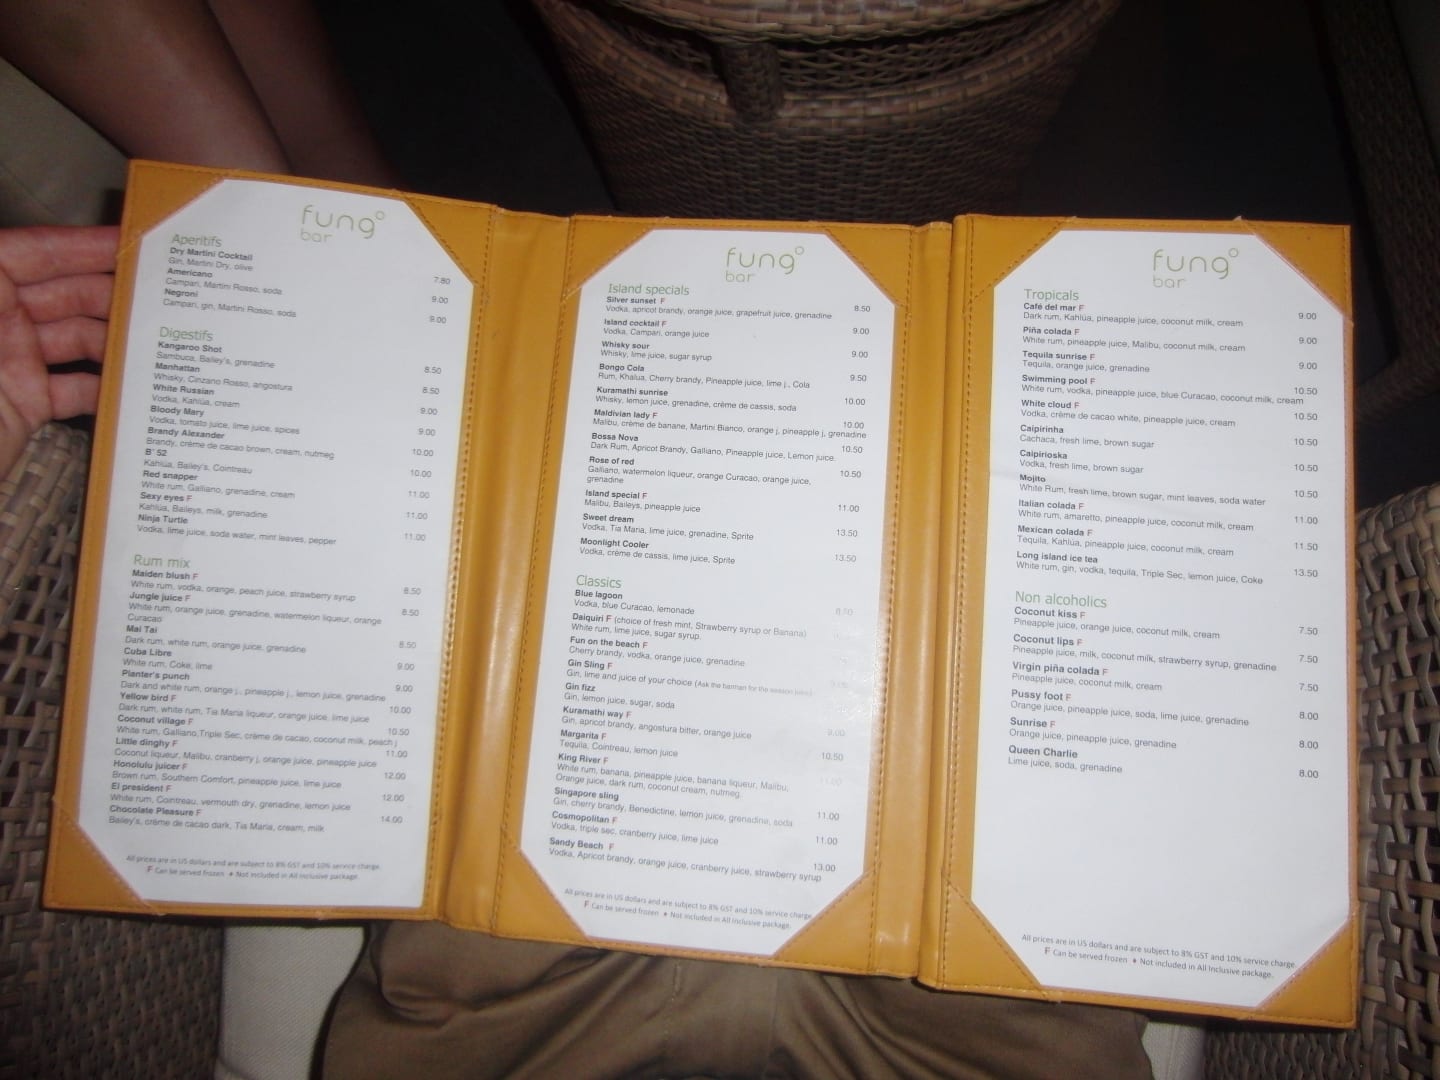 fung°
bar
Aperitifs
Dry Martini Cocktail
Gin, Martini Dry, olive 7.80
Americano
Campari, Martini Rosso, soda 9.00
Negroni
Campari, gin, Martini Rosso, soda 9.00
Digestifs
Kangaroo Shot
Sambuca, Bailey's, grenadine 8.50
Manhattan
Whisky, Cinzano Rosso, angostura 8.50
White Russian
Vodka, Kahlúa, cream 9.00
Bloody Mary
Vodka, tomato juice, lime juice, spices 9.00
Brandy Alexander
Brandy, crème de cacao brown, cream, nutmeg 10.00
B' 52
Kahlúa, Bailey's, Cointreau 10.00
Red snapper
White rum, Galliano, grenadine, cream 11.00
Sexy eyes F
Kahlúa, Baileys, milk, grenadine 11.00
Ninja Turtle
Vodka, lime juice, soda water, mint leaves, pepper 11.00
Rum mix
Maiden blush F
White rum, vodka, orange, peach juice, strawberry syrup 8.50
Jungle juice F
White rum, orange juice, grenadine, watermelon liqueur, orange 8.50
Curacao
Mai Tai
Dark rum, white rum, orange juice, grenadine 8.50
Cuba Libre
White rum, Coke, lime 9.00
Planter's punch
Dark and white rum, orange j., pineapple j., lemon juice, grenadine 9.00
Yellow bird F
Dark rum, white rum, Tia Maria liqueur, orange juice, lime juice 10.00
Coconut village F
White rum, Galliano,Triple Sec, crème de cacao, coconut milk, peach j 10.50
Little dinghy F
Coconut liqueur, Malibu, cranberry j, orange juice, pineapple juice 11.00
Honolulu juicer F
Brown rum, Southern Comfort, pineapple juice, lime juice 12.00
El president F
White rum, Cointreau, vermouth dry, grenadine, lemon juice 12.00
Chocolate Pleasure F
Bailey's, crème de cacao dark, Tia Maria, cream, milk 14.00
All prices are in US dollars and are subject to 8% GST and 10% service charge.
F Can be served frozen ♦ Not included in All Inclusive package.
fung°
bar
Island specials
Silver sunset F
Vodka, apricot brandy, orange juice, grapefruit juice, grenadine 8.50
Island cocktail F
Vodka, Campari, orange juice 9.00
Whisky sour
Whisky, lime juice, sugar syrup 9.00
Bongo Cola
Rum, Khalua, Cherry brandy, Pineapple juice, lime j., Cola 9.50
Kuramathi sunrise
Whisky, lemon juice, grenadine, crème de cassis, soda 10.00
Maldivian lady F
Malibu, crème de banane, Martini Bianco, orange j, pineapple j, grenadine 10.00
Bossa Nova
Dark Rum, Apricot Brandy, Galliano, Pineapple juice, Lemon juice. 10.50
Rose of red
Galliano, watermelon liqueur, orange Curacao, orange juice, 10.50
grenadine
Island special F
Malibu, Baileys, pineapple juice 11.00
Sweet dream
Vodka, Tia Maria, lime juice, grenadine, Sprite 13.50
Moonlight Cooler
Vodka, crème de cassis, lime juice, Sprite 13.50
Classics
Blue lagoon
Vodka, blue Curacao, lemonade 8.50
Daiquiri F (choice of fresh mint, Strawberry syrup or Banana)
White rum, lime juice, sugar syrup
Fun on the beach F
Cherry brandy, vodka, orange juice, grenadine
Gin Sling F
Gin, lime and juice of your choice (Ask the barman for the season juice)
Gin fizz
Gin, lemon juice, sugar, soda
Kuramathi way F
Gin, apricot brandy, angostura bitter, orange juice 9.00
Margarita F
Tequila, Cointreau, lemon juice 10.50
King River F
White rum, banana, pineapple juice, banana liqueur, Malibu, 11.00
Orange juice, dark rum, coconut cream, nutmeg
Singapore sling
Gin, cherry brandy, Benedictine, lemon juice, grenadine, soda 11.00
Cosmopolitan F
Vodka, triple sec, cranberry juice, lime juice 11.00
Sandy Beach F
Vodka, Apricot brandy, orange juice, cranberry juice, strawberry syrup 13.00
All prices are in US dollars and are subject to 8% GST and 10% service charge.
F Can be served frozen ♦ Not included in All Inclusive package.
fung°
bar
Tropicals
Café del mar F
Dark rum, Kahlúa, pineapple juice, coconut milk, cream 9.00
Piña colada F
White rum, pineapple juice, Malibu, coconut milk, cream 9.00
Tequila sunrise F
Tequila, orange juice, grenadine 9.00
Swimming pool F
White rum, vodka, pineapple juice, blue Curacao, coconut milk, cream 10.50
White cloud F
Vodka, crème de cacao white, pineapple juice, cream 10.50
Caipirinha
Cachaca, fresh lime, brown sugar 10.50
Caipirioska
Vodka, fresh lime, brown sugar 10.50
Mojito
White Rum, fresh lime, brown sugar, mint leaves, soda water 10.50
Italian colada F
White rum, amaretto, pineapple juice, coconut milk, cream 11.00
Mexican colada F
Tequila, Kahlúa, pineapple juice, coconut milk, cream 11.50
Long island ice tea
White rum, gin, vodka, tequila, Triple Sec, lemon juice, Coke 13.50
Non alcoholics
Coconut kiss F
Pineapple juice, orange juice, coconut milk, cream 7.50
Coconut lips F
Pineapple juice, milk, coconut milk, strawberry syrup, grenadine 7.50
Virgin piña colada F
Pineapple juice, coconut milk, cream 7.50
Pussy foot F
Orange juice, pineapple juice, soda, lime juice, grenadine 8.00
Sunrise F
Orange juice, pineapple juice, grenadine 8.00
Queen Charlie
Lime juice, soda, grenadine 8.00
All prices are in US dollars and are subject to 8% GST and 10% service charge.
F Can be served frozen ♦ Not included in All Inclusive package.